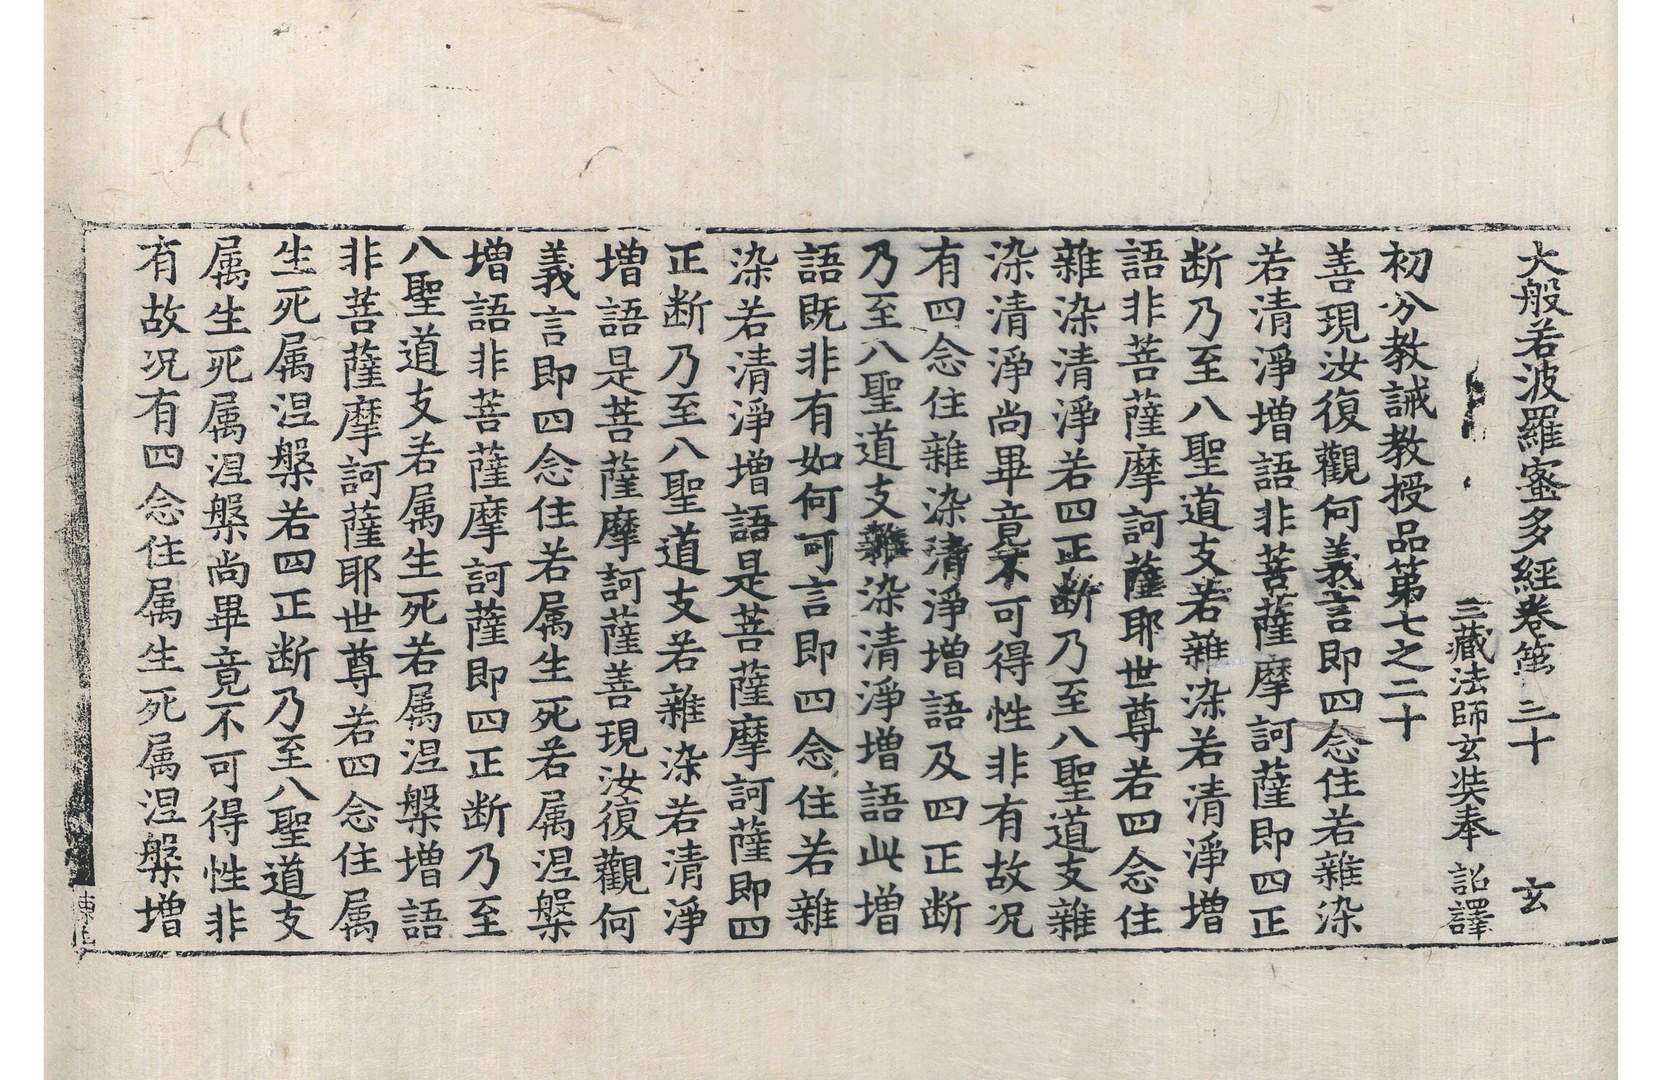 大般若波羅蜜多經卷第三十 玄
三藏法師玄奘奉 詔譯
初分教誡教授品第七之二十
善現汝復觀何義言即四念住若雜染
若清淨增語非菩薩摩訶薩即四正
断乃至八聖道支若雜染若清淨增
語非菩薩摩訶薩耶世尊若四念住
雜染清淨若四正断乃至八聖道支雜
染清淨尚畢竟不可得性非有故况
有四念住雜染清淨增語及四正断
乃至八聖道支雜染清淨增語此增
語既非有如何可言即四念住若雜
染若清淨增語是菩薩摩訶薩即四
正断乃至八聖道支若雜染若清淨
增語是菩薩摩訶薩善現汝復觀何
義言即四念住若属生死若属涅槃
增語非菩薩摩訶薩即四正断乃至
八聖道支若属生死若属涅槃增語
非菩薩摩訶薩耶世尊若四念住属
生死属涅槃若四正断乃至八聖道支
属生死属涅槃尚畢竟不可得性非
有故况有四念住属生死属涅槃增